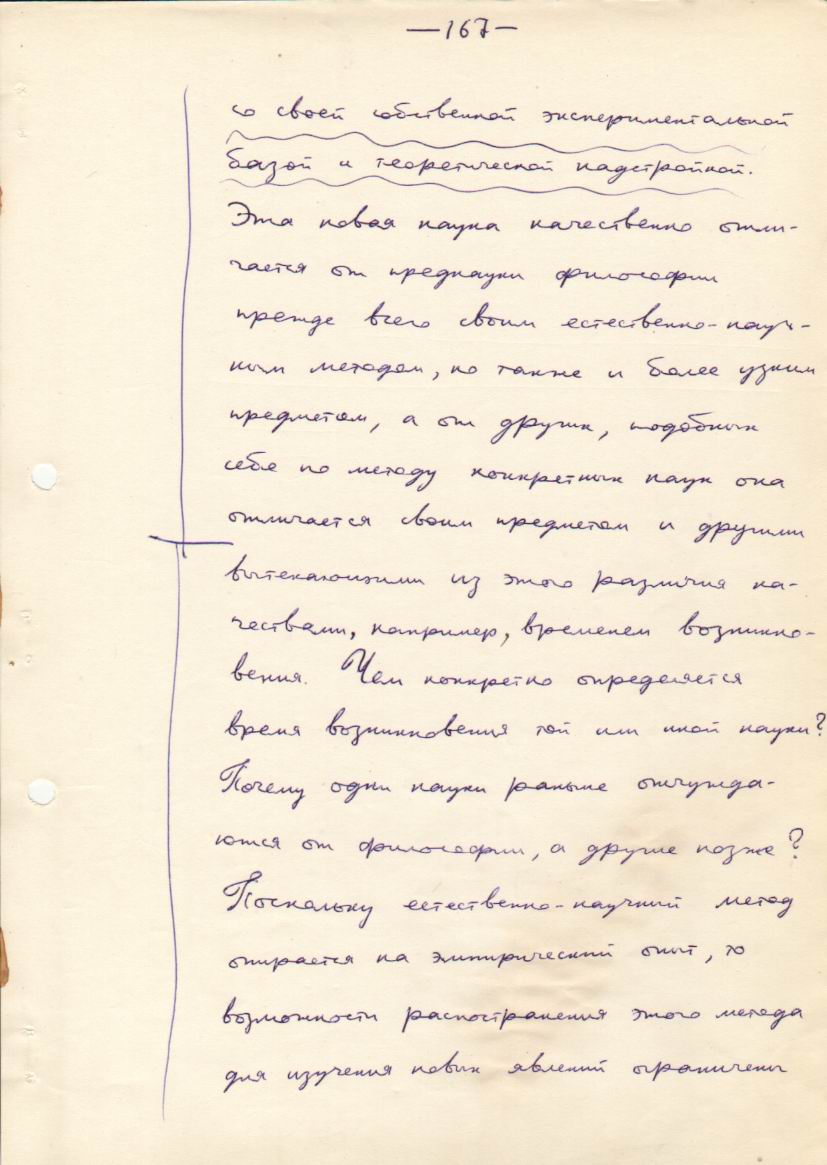 —167—
со своей собственной экспериментальной
базой и теоретической надстройкой.
Эта новая наука качественно отли-
чается от преднауки философии
прежде всего своим естественно-науч-
ным методом, но также и более узким
предметом, а от других, подобных
себе по методу конкретных наук она
отличается своим предметом и другими
вытекающими из этого различия ка-
чествами, например, временем возникно-
вения. Чем конкретно определяется
время возникновения той или иной науки?
Почему одни науки раньше отчужда-
ются от философии, а другие позже?
Поскольку естественно-научный метод
опирается на эмпирический опыт, то
возможности распостранения этого метода
для изучения новых явлений ограничены